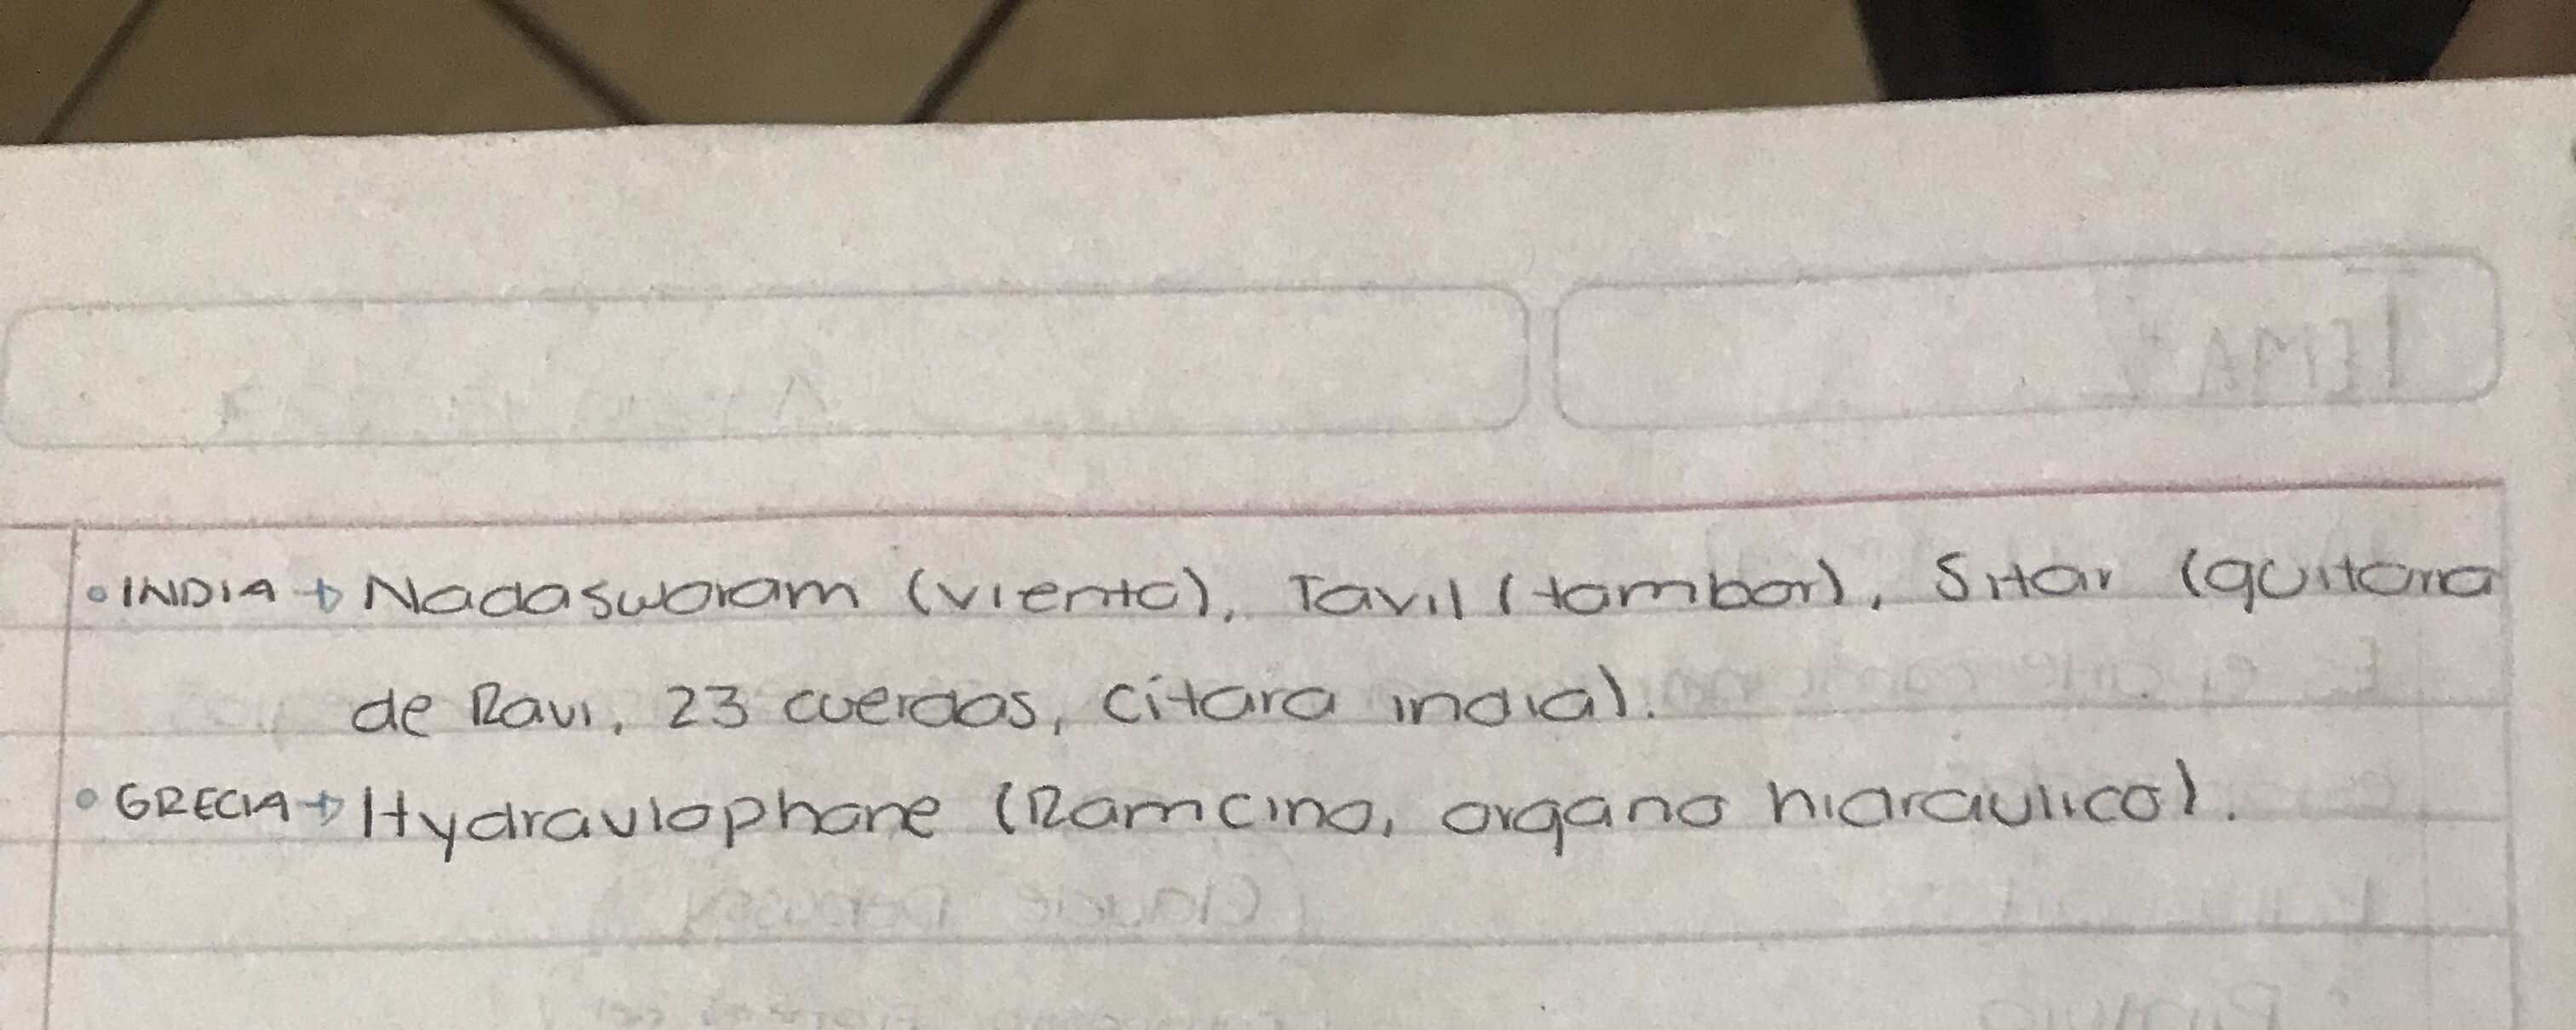 • INDIA → Nadasworam (viento), Tavil (tambor), Sitar (guitarra
de Ravi, 23 cuerdas, cítara india).
• GRECIA → Hydraulophone (Ramcino, organo hidraulico).
TEMA
(Claude Debussy)